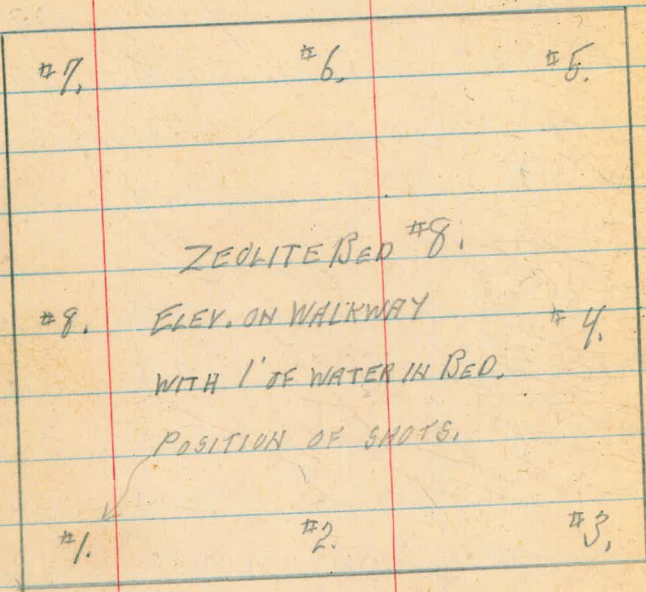 #7. #6. #5.
ZEOLITE BED #8.
#8. ELEV. ON WALKWAY #4.
WITH 1' OF WATER IN BED.
POSITION OF SHOTS.
#1. #2. #3.